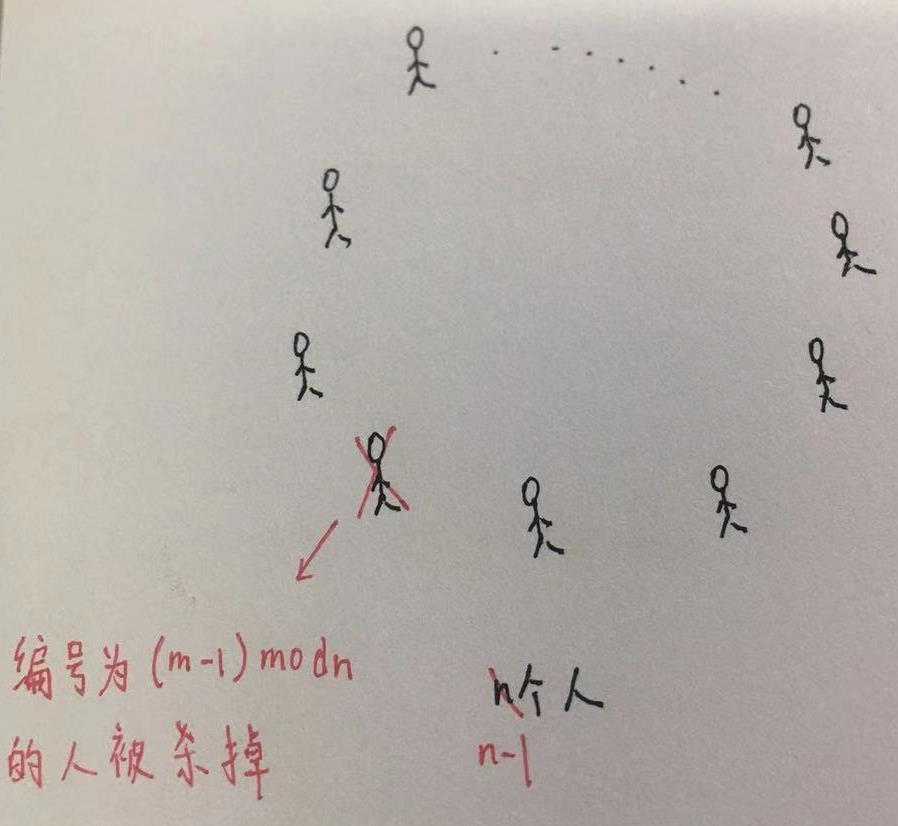 编号为(m-1)modn
的人被杀掉
n个人
n-1